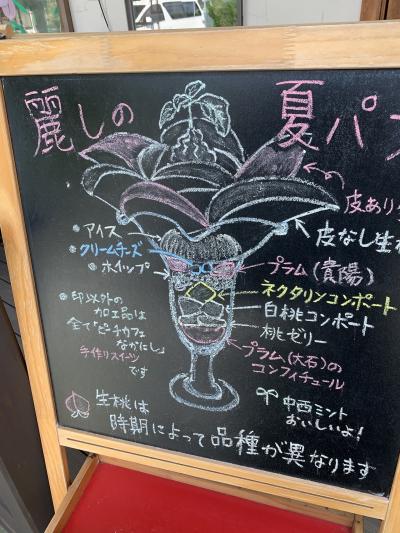 麗しの 夏パフ
皮あり生
皮なし生桃
●アイス
●クリームチーズ
●ホイップ
プラム(貴陽)
ネクタリンコンポート
白桃コンポート
桃ゼリー
プラム(大石)の
コンフィチュール
●印以外の
加工品は
全て「ピーチカフェ
なかにし」
手作りスイーツ
です
中西ミント
おいしいよ!
生桃は
時期によって品種が異なります